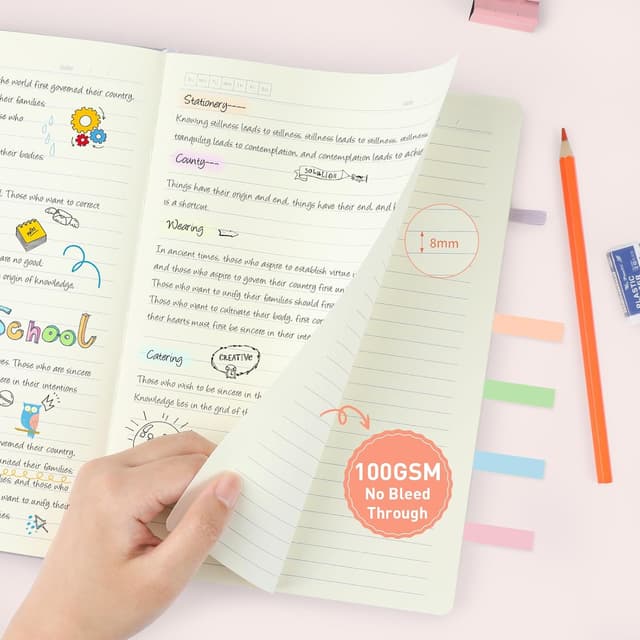 the world first governed their country,
their families
se who
their bodies:
l. Those who want to correct
are no good.
origin of knowledge.
School
ves. Those who are sincere
ere in their intentions
overned their country,
unted their families
ies. and those who
want to unify their
ies
Stationery----
Knowing stillness leads to stillness, stillness leads to stillness, stillness
tranquility leads to contemplation, and contemplation leads to achie
County---
solution
Things have their origin and end, things have their end, and
is a shortcut.
Wearing
In ancient times, those who aspire to establish virtue
and those who aspire to govern their country first un
Those who want to unify their families should first
Those who want to cultivate their body, first cor
their hearts must first be sincere in their inte
Catering
CREATIVE
Those who wish to be sincere in th
Knowledge lies in the grid of th
8mm
100GSM
No Bleed
Through